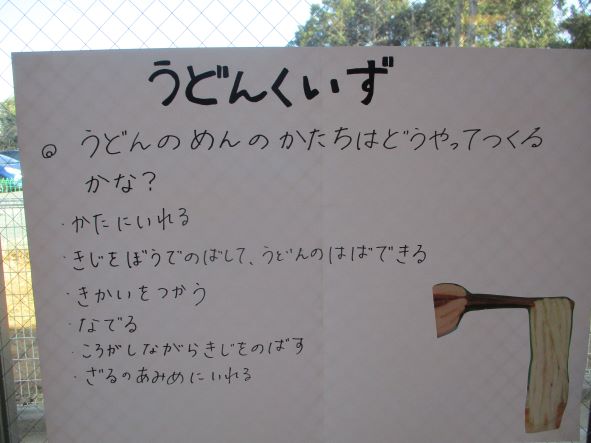 うどんくいず
Q うどんのめんのかたちはどうやってつくる
かな？
・かたにいれる
・きじをぼうでのばして、うどんのはばできる
・きかいをつかう
・なでる
・ころがしながらきじをのばす
・ざるのあみめにいれる